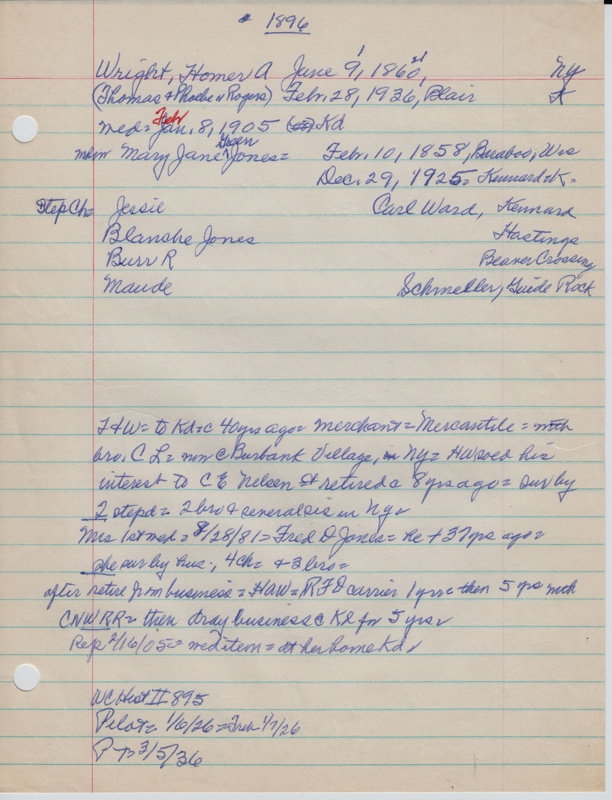 1896
Wright, Homer A June 9, 1860, NY
(Thomas & Phoebe Rogers) Feb. 28, 1936, Blair K
med = Jan. 8, 1905 Kd
Feb
Green
mdn Mary Jane Jones = Feb. 10, 1858, Baraboo, Wis
Dec. 29, 1925 = Kennard = K =
Step Ch = Jessie Carl Ward, Kennard
Blanche Jones Hastings
Burr R Beaver Crossing
Maude Schmeller, Guide Rock
to Kd = c 40 yrs ago = merchant = Mercantile = with
bro. C L = Burbank Village, in NY = HW sold his
interest to C E Nelsen & retired c 8 yrs ago = sur by
2 stepd = 2 bro & several sis in NY
Mrs 1st med = 8/28/81 = Fred D Jones = he + 37 yrs ago =
she sur by hus., 4 ch = & 3 bro =
after retire from business = HAW = RFD carrier 1 yr = then 5 yrs with
CNW RR = then dray business c Kd for 5 yrs
Rep 2/16/05 = med item = at her home Kd
WC Hist II 895
Pilot = 1/6/26 = 1/7/26
3/5/36